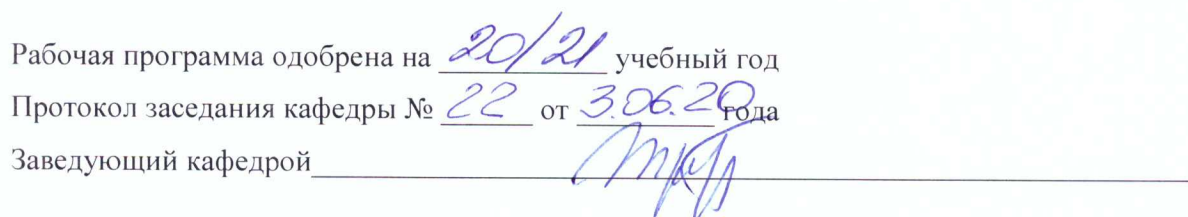 Рабочая программа одобрена на 20/21 учебный год
Протокол заседания кафедры № 22 от 3.06.20 года
Заведующий кафедрой